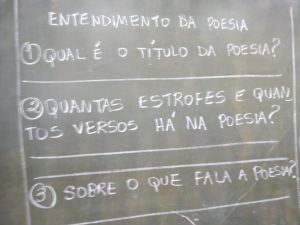 ENTENDIMENTO DA POESIA
① QUAL É O TÍTULO DA POESIA?
② QUANTAS ESTROFES E QUAN
TOS VERSOS HÁ NA POESIA?
③ SOBRE O QUE FALA A POESIA?